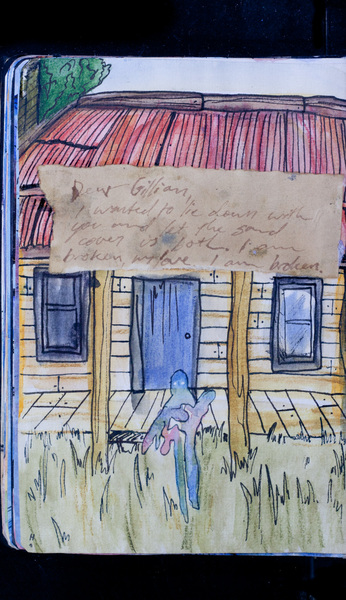 Dear Gillian,
I wanted to lie down with
you and let the sand
cover us both. I am
broken, my love. I am broken.